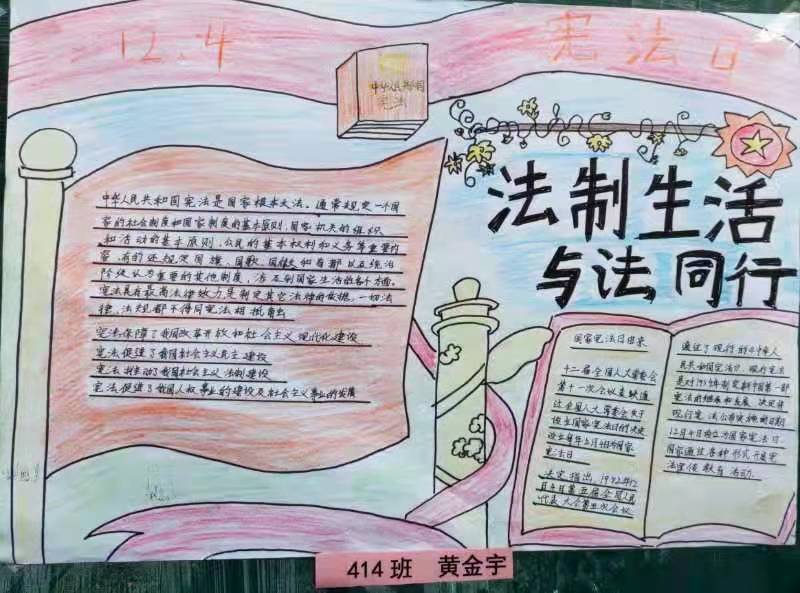 12.4 宪法日
中华人民共和国
宪法
法制生活
与法同行
中华人民共和国宪法是国家根本大法。通常规定一个国
家的社会制度和国家制度的基本原则,国家机关的组织
和活动的基本原则,公民的基本权利和义务等重要内
容,有的还规定国旗、国歌、国徽和首都以及统治
阶级认为重要的其他制度,涉及到国家生活的各个方面。
宪法具有最高法律效力,是制定其它法律的依据,一切法
律、法规都不得同宪法相抵触
宪法保障了我国改革开放和社会主义现代化建设
宪法促进了我国社会主义民主建设
宪法推动了我国社会主义法制建设
宪法促进了我国人权事业的建设及社会主义事业的发展
国家宪法日由来
十二届全国人大常委会
第十一次会议表决通
过全国人大常委会关于
设立国家宪法日的决定
设立每年12月4日为国家
宪法日
决定指出,1982年12
月4日第五届全国人民
代表大会第五次会议
通过了现行的中华人
民共和国宪法。现行宪法
是对1954年制定新中国第一部
宪法的继承和发展,决定将
现行宪法公布实施的日期
12月4日设立为国家宪法日.
国家通过各种形式开展宪
法宣传教育活动.
414班 黄金宇